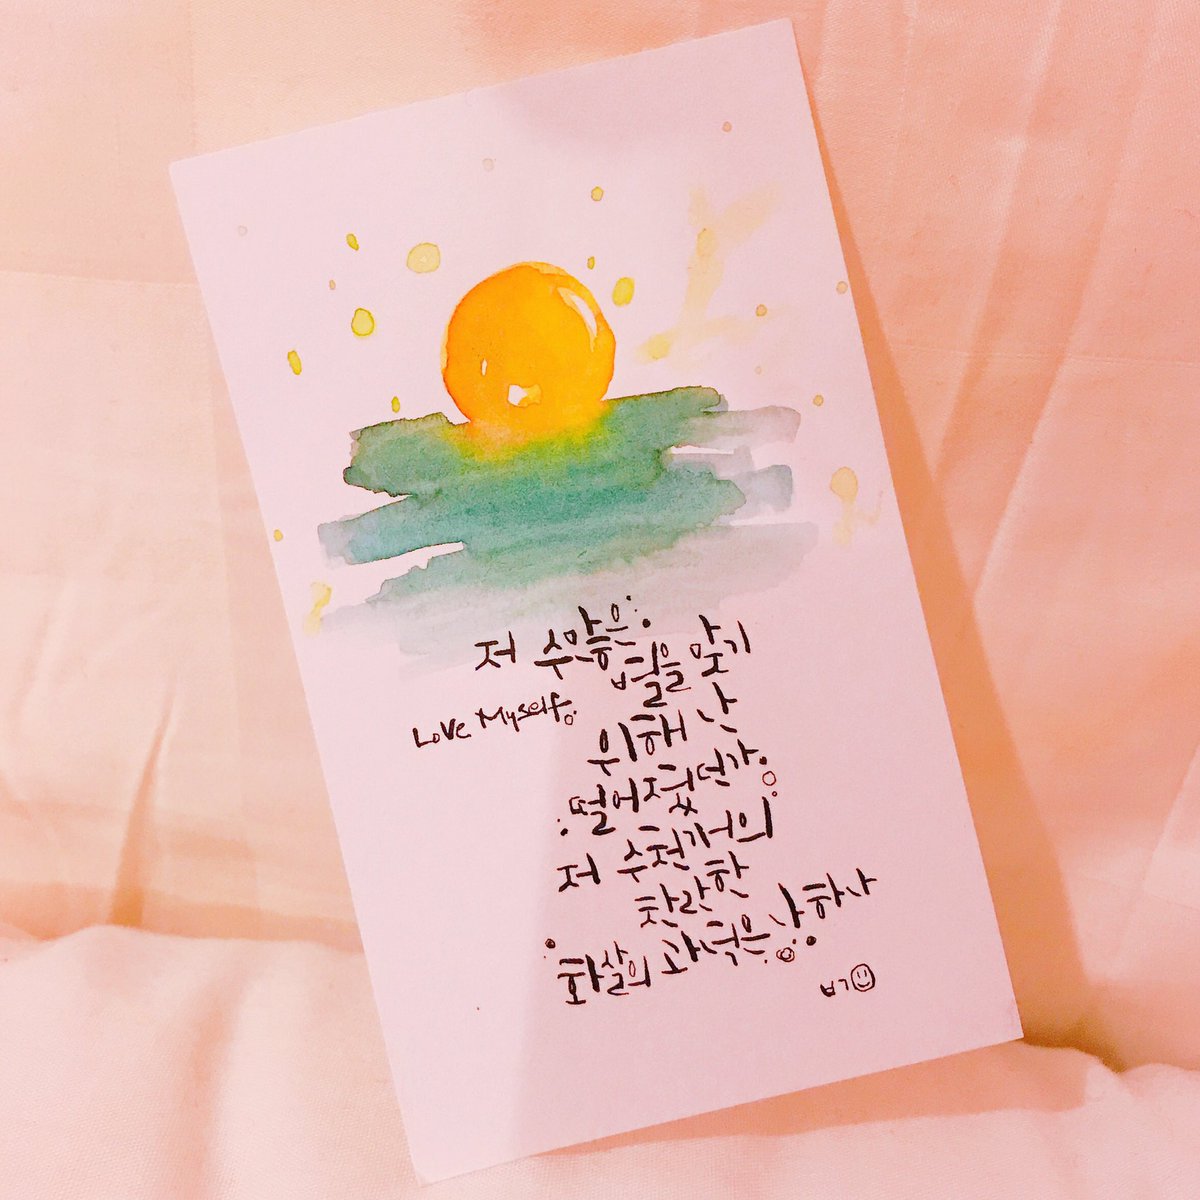 저 수많은
빌을 맞기
Love Myself.
위해 난
떨어졌던가
저 수천개의
찬란한
화살의 과녁은 나 하나
ㅂㄱ